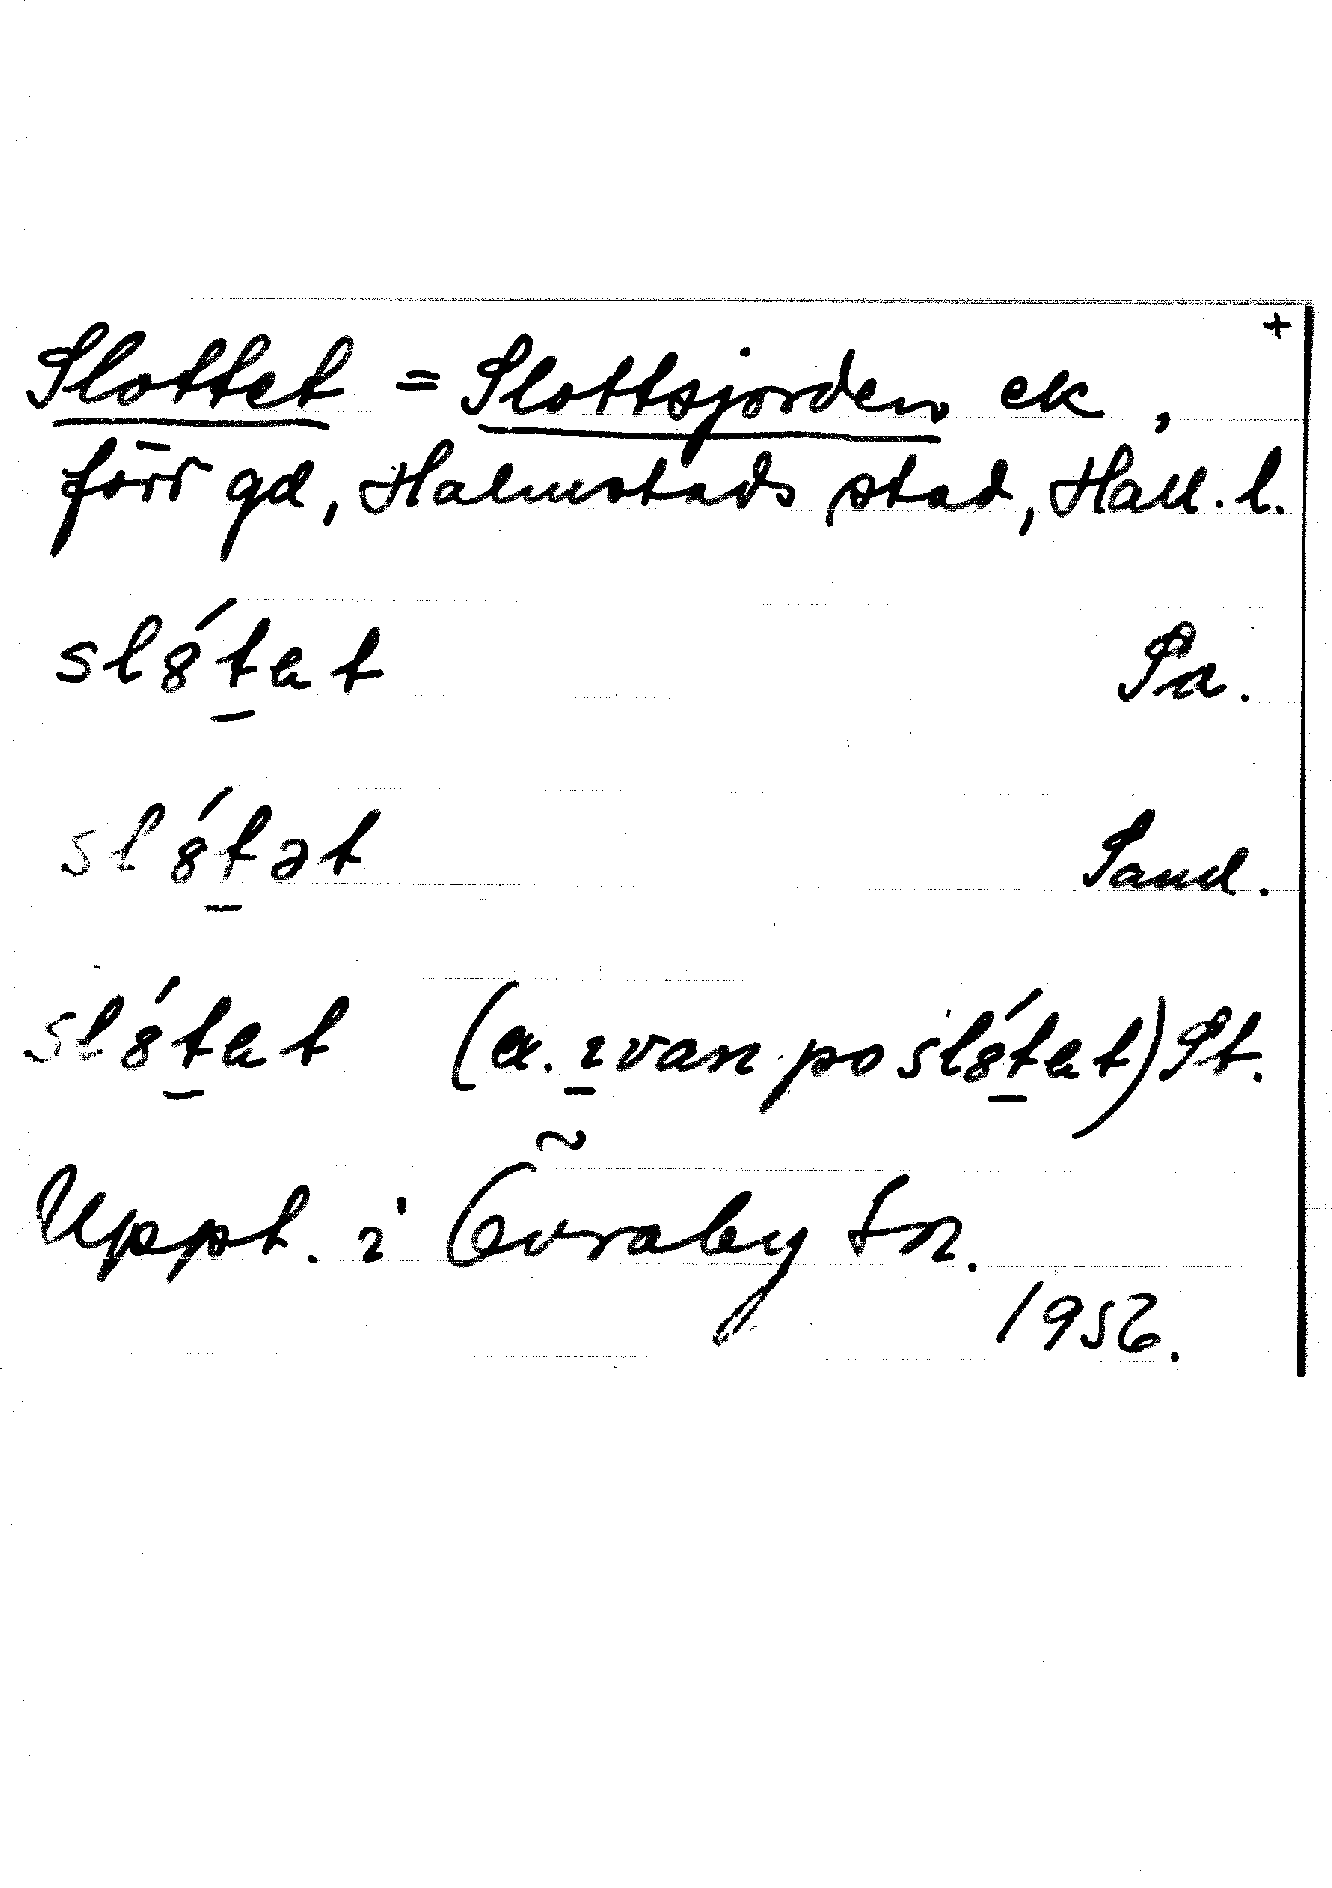 +
Slottet = Slottsjorden ek,
förr gd, Halmstads stad, Hall. l.
sl8́t̠et Sa.
sl8́t̠ət Sand.
sl8́t̠et (a. ı̠van po sl8́t̠et) St.
Uppt. i Övraby sn.
1956.